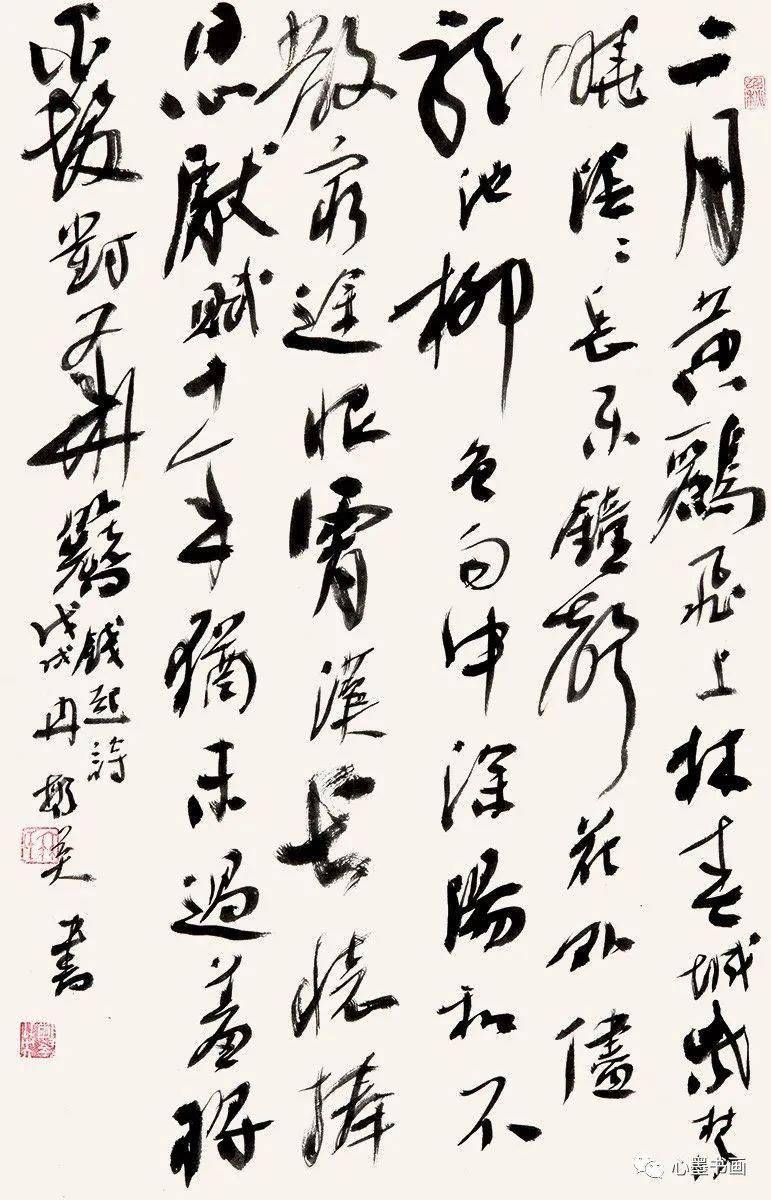 二月黃鸝飛上林春城紫禁
曉陰〻長樂鐘聲花外儘
龍池柳色雨中深陽和不
散窮途恨霄漢長懷捧
日心獻賦十年猶未遇羞將
白髮對華簪
錢起詩
戊戌冉英書
心墨书画